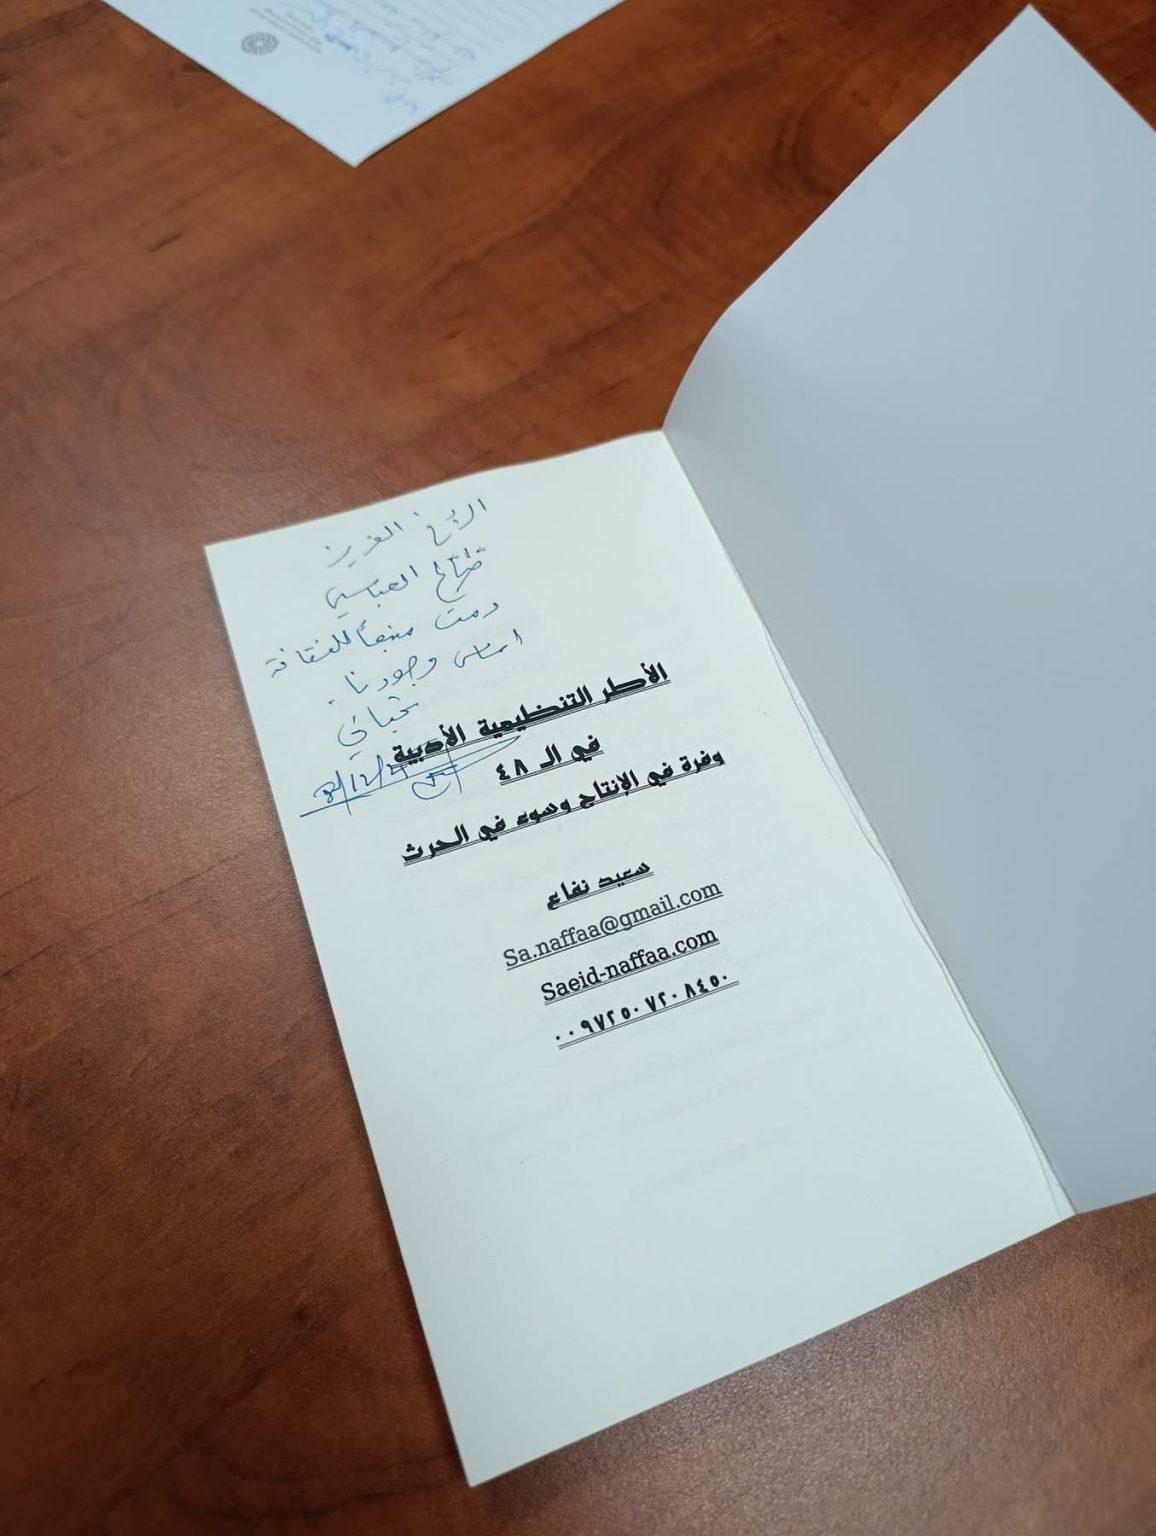 الأخ العزيز
العباسي
دمت منبعاً للثقافة
اساس وجودنا.
تحياتي
الأطر التنظيمية الأدبية
في الـ ٤٨
وفرة في الإنتاج وسوء في الحرث
سعيد نفاع
Sa.naffaa@gmail.com
Saeid-naffaa.com
٠٠٩٧٢٥٠٧٢٠٨٤٥٠